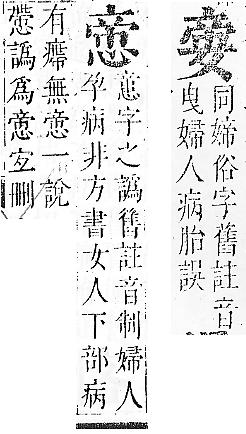 同俗字舊註音
曳婦人病胎誤
字之譌舊註音制婦人
孕病非方書女人下部病
有㿃無一說
慸譌為宜刪